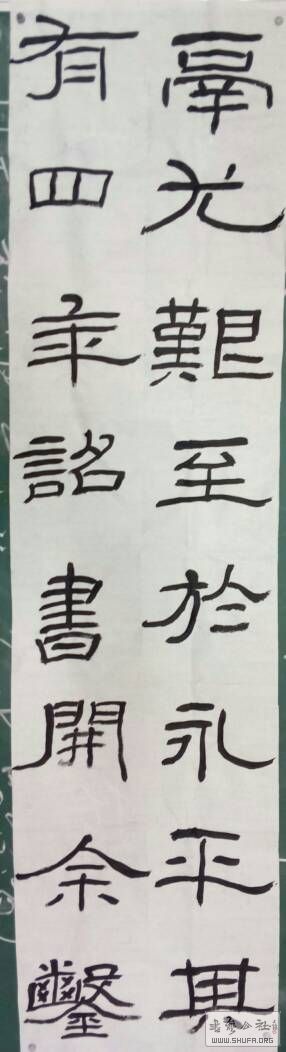 鬲尤艱至於永平其
有四年詔書開余鑿
书艺公社
WWW.SHUFA.ORG